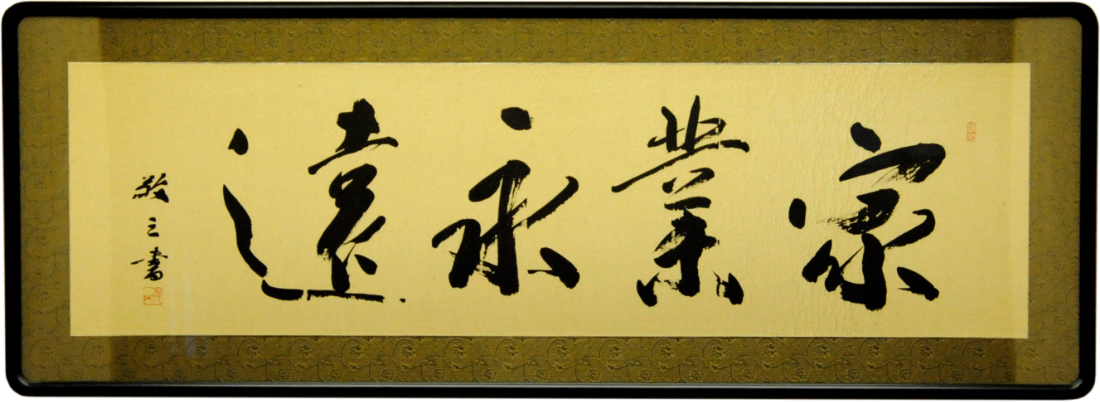 家業永遠
敬三書